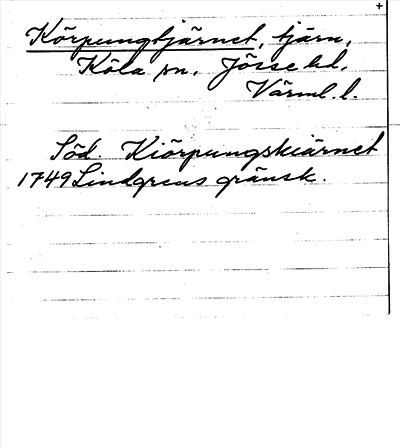 +
Körpungtjärnet, tjärn,
Köla sn. Jösse hd.
Värml. l.
Söd. Kiörpungskiärnet
1749 Lindgrens gränsk.